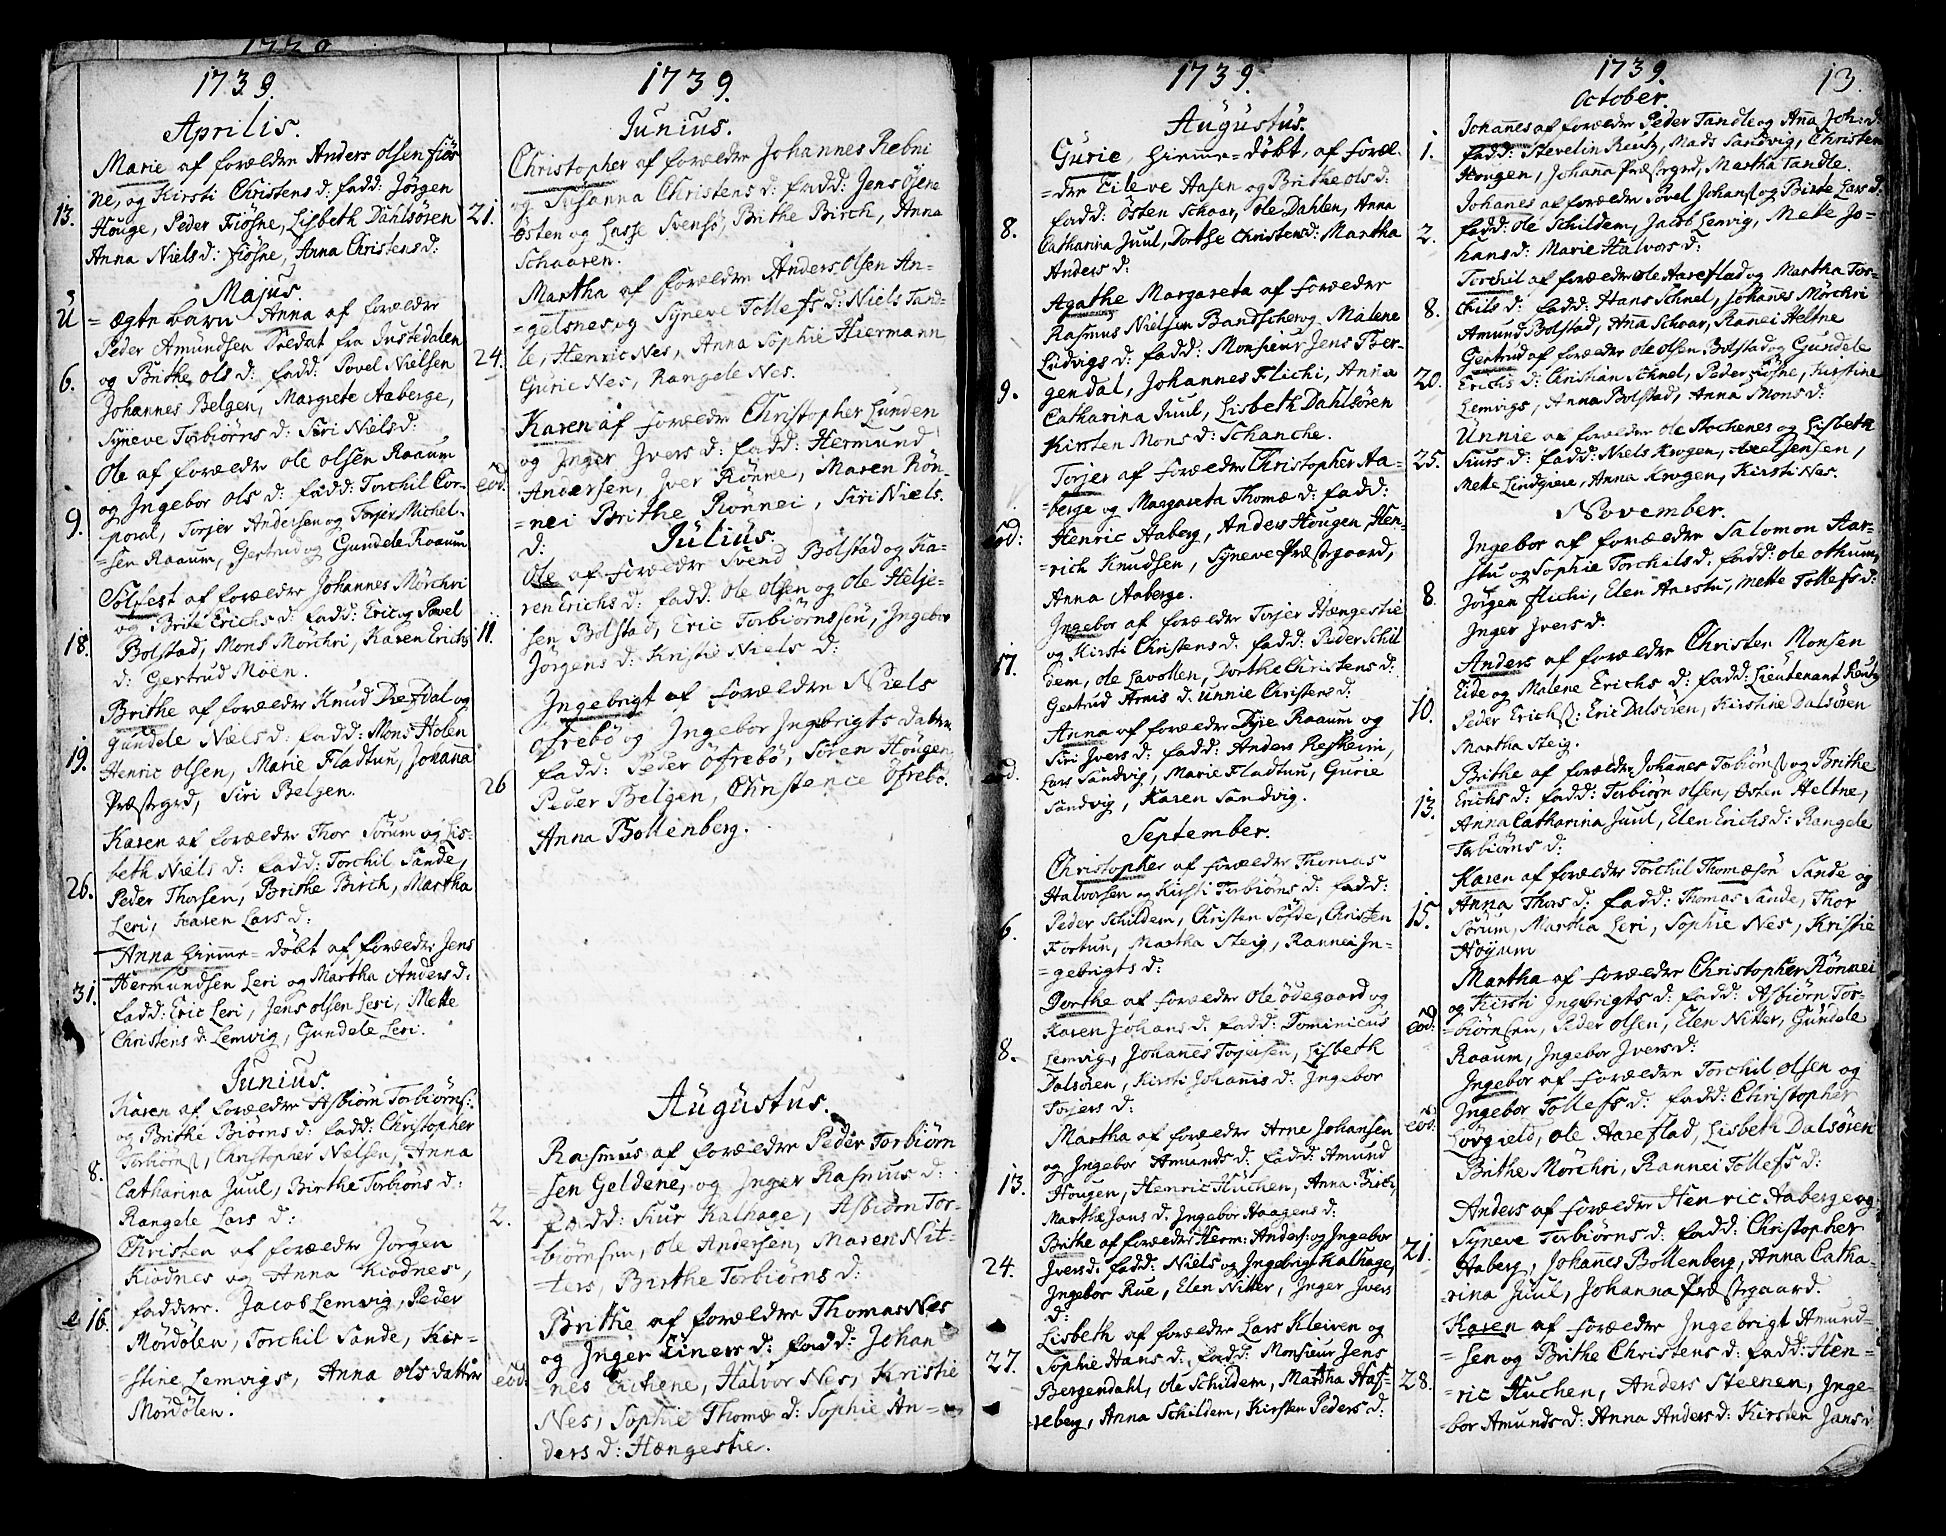 1739.
Aprilis.
Marie af forældre Anders olsen fiös
ne, og Kirsti Christens d: fadd: Jörgen
13. Houge, Peder Fiösne, Lisbeth Dahlsören
Anna Niels d: fiösne, Anna Christens d:
Majus.
U = ægte barn Anna af forældre
Peder Amundsen Soldat fra Justedalen
6. og Brithe ols d: fadd: Povel Nielsen
Johannes Belgen, Margrete Aaberge,
Syneve Torbiörns d: Siri Niels d:
Ole af forældre ole olsen Raaum
og Ingebor ols d: fadd: Torchil Cor-
9. poral, Torjer Andersen og Torjer Michel-
=sen Raaum, Gertrud og Gundele Raaum
Solfest af forældre Johannes Mörchri
og Brite Erichs d: fadd: Eric og Povel
18. Bolstad, Mons Mörchri, Karen Erichs
d: Gertrud Moen.
Brithe af forældre Knud Drefdal og
Gundele Niels d: fadd: Mons Holen
19. Henric olsen, Marie Fladtun, Johanna
Præstegrd, Siri Belgen.
Karen af forældre Thor Sörum og Lis-
beth Niels d: fadd: Torchil Sande,
26. Peder Thorsen, Brithe Birch, Martha
Leri, Karen Lars d:
Anna hieme=döbt af forældre Jens
Hermundsen Leri og Martha Anders d:
31. fadd: Eric Leri, Jens olsen Leri, Mette
Christens d: Lemvig, Gundele Leri.
Junius.
Karen af forældre Asbiörn Torbiörns:
og Brithe Biörns d: fadd: Christopher
Torbiörns, Christopher Nielsen, Anna
8. Catharina Juul, Birthe Torbiöns d:
Rangele Lars d:
Christen af forældre Jörgen
Kiödnes og Anna Kiödnes,
16. faddere. Jacob Lemvig, Peder
Mördölen, Torchil Sande, Kir-
stine Lemvigs, Anna ols datter
Mördölen.
1739.
Junius.
Christopher af forældre Johannes Rebni
og Susanna Christens d: fadd: Jens Öiene
21. Östen og Lasse Svensö, Brithe Birch, Anna
Schaaren.
Martha af forældre Anders olsen An-
=gelsnes og Syneve Tollefs d: Niels Tand-
24. le, Henric Nes, Anna Sophie Hiermann
Gurie Nes, Rangele Nes.
Karen af forældre Christopher Lunden
og Inger Ivers d: fadd: Hermund
eod. Andersen, Iver Rönne, Maren Rön-
=nei Brithe Rönnei, Siri Niels
d:
Julius.
Ole af forældre Svend Bolstad og Ka-
ren Erichs d: fadd: Ole olsen og ole Helje-
11. sen Bolstad, Eric Torbiörnssen, Ingebor
Jörgens d: Kristie Niels d:
Ingebrigt af forældre Niels
Ofrebö og Ingebor Ingebrigts datter
fadd: Peder Öfrebö, Sören Hougen,
26 Peder Belgen, Christence Öfrebö.
Anna Bollenberg.
Augustus.
Rasmus af forældre Peder Torbiörn
=sen Geldene, og Inger Rasmus d:
2. fadd: Siur Kalhage, Asbiörn Tor-
=biörnsen, ole Andersen, Maren Nit-
=ters, Birthe Torbiörns d:
Brithe af forældre Thomas Nes
og Inger Einers d: fadd: Johan
eod. =nes Eichene, Halvor Nes, Kristie
Nes, Sophie Thomæ d: Sophie An-
ders d: Hængestie.
1739.
Augustus.
Gurie, hieme=döbt, af foræl-
=dre Eileve Aasen og Brithe ols d:
8. fadd: Östen Schaar, ole Dahlen, Anna
Catharina Juul, Dorthe Christens d: Martha
Anders d:
Agathe Margareta af forældre
Rasmus Nielsen Bandscher og Malene
Ludvigs d: fadd: Monsieur Jens Ber-
9. gendal, Johannes Flichi, Anna
Catharina Juul, Lisbeth Dahlsören
Kirsten Mons d: Schanche.
Torjer af forældre Christopher Aa-
berge og Margareta Thomæ d: fadd:
eod: Henric Aaberg, Anders Hougen, Hen-
rich Knudsen, Syneve Præstegaard,
Anna Aaberge.
Ingebor af forældre Torjer Hængestie
og Kirsti Christens d: fadd: Peder Schil
17. dem, ole Lavollen, Dorthe Christens d:
Gertrud Arnis d. Unnie Christens d:
Anna af forældre Tyje Raaum og
Siri Ivers d: fadd: Anders Refheim,
eod. Lars Sandvig, Marie Fladtun, Gurie
Sandvig, Karen Sandvig.
September.
Christopher af forældre Thomas
Halvorsen og Kirsti Torbiörns d: fadd:
6. Peder Schildem, Christen Söfde, Christen
Fortun, Martha Steig, Rannei In-
=gebrigts d:
Dorthe af forældre ole ödegaard og
Karen Johans d: fadd: Dominicus
8. Lemvig, Johannes Torjersen, Lisbeth
Dalsören, Kirsti Johannis d: Ingebor
Torjers d:
Martha af forældre Arne Johansen
og Ingebor Amunds d: fadd: Amund
13. Hougen, Henric Huchen, Anna Birch,
Marthe Jans d: Ingebor Haagens d:
Brithe af forældre Herm: Anders: og Ingebor
24. Ivers d: fadd: Niels og Ingebrigt Kalhage,
Ingebor Rue, Elen Nitter, Inger Ivers
d:
Lisbeth af forældre Lars Kleiven og
27. Sophie Hans d: fadd: Monsieur Jens
Bergendahl, ole Schildem, Martha Has-
=leberg, Anna Schildem, Kirsten Peders d:
1739. 13.
October.
Johannes af forældre Peder Tandle og Anna Joh: d:
1. fadd: Stevelin Reutz, Mads Sandvig, Christen
Hougen, Johanna Præstegrd, Martha Tandle.
Johanes af forældre Povel Johans og Birte Lars d:
2. fadd: ole Schildem, Jacob Lemvig, Mette Jo-
hans d: Marie Halvors d:
Torchil af forældre ole Aareflad og Martha Tor-
8. chils d: fadd: Hans Schnel, Johannes Mörchri
Amund Bolstad, Anna Schaar, Rannei Heltne
Gertrud af forældre ole olsen Bolstad og Gundele
20. Erichs d: Christian Schnel, Peder fiösne, Kirstine
Lemvigs, Anna Bolstad, Anna Mons d:
Unnie af forældre ole Stochenes og Lisbeth
25. Siurs d: fadd: Niels Krogen, Axel Jensen,
Mette Lindgren, Anna Krogen, Kirsti Nes.
November.
Ingebor af forældre Salomon Aar-
stu og Sophie Torchils d: fadd: ole othum
8. Jörgen Flichi, Elen Aarstu, Mette Tollefs d:
Inger Ivers d:
Anders af forældre Christen Monsen
Eide og Malene Erichs d: fadd: Lieutenant Reutz
10. Peder Erichs: Eric Dalsören, Kirstine Dalsören
Martha Steig.
Brithe af forældre Johannes Torbiörns og Brithe
13. Erichs d: fadd: Torbiörn olsen, Östen Heltne,
Anna Catharina Juul, Elen Erichs d: Rangele
Torbiörns d:
Karen af forældre Torchil Thomæsön Sande og
15. Anna Thors d: fadd: Thomas Sande, Thor
Sörum, Martha Leri, Sophie Nes, Kristie
Höyum
Martha af forældre Christopher Rönnei
og Kirsti Ingebrigts d: fadd: Asbiörn Tor-
eod. =biörnsen, Peder olsen, Elen Nitter, Gundele
Raaum, Ingebor Ivers d:
Ingebor af forældre Torchil olsen og
eod. Ingebor Tollefs d: fadd: Christopher
Lörgield, ole Aareflad, Lisbeth Dalsören
Brithe Mörchri, Rannei Tollefs d:
Anders af forældre Henric Aaberge og
21. Syneve Torbiörns d: fadd: Christopher
Haberg, Johannes Bollenberg, Anna Catha-
rina Juul, Johanna Præstgaard.
Karen af forældre Ingebrigt Amund-
=sen og Brithe Christens d: fadd: Hen-
28. =ric Huchen, Anders Steenen, Inge-
bor Amunds d: Anna Anders d: Kirsten Jans d: